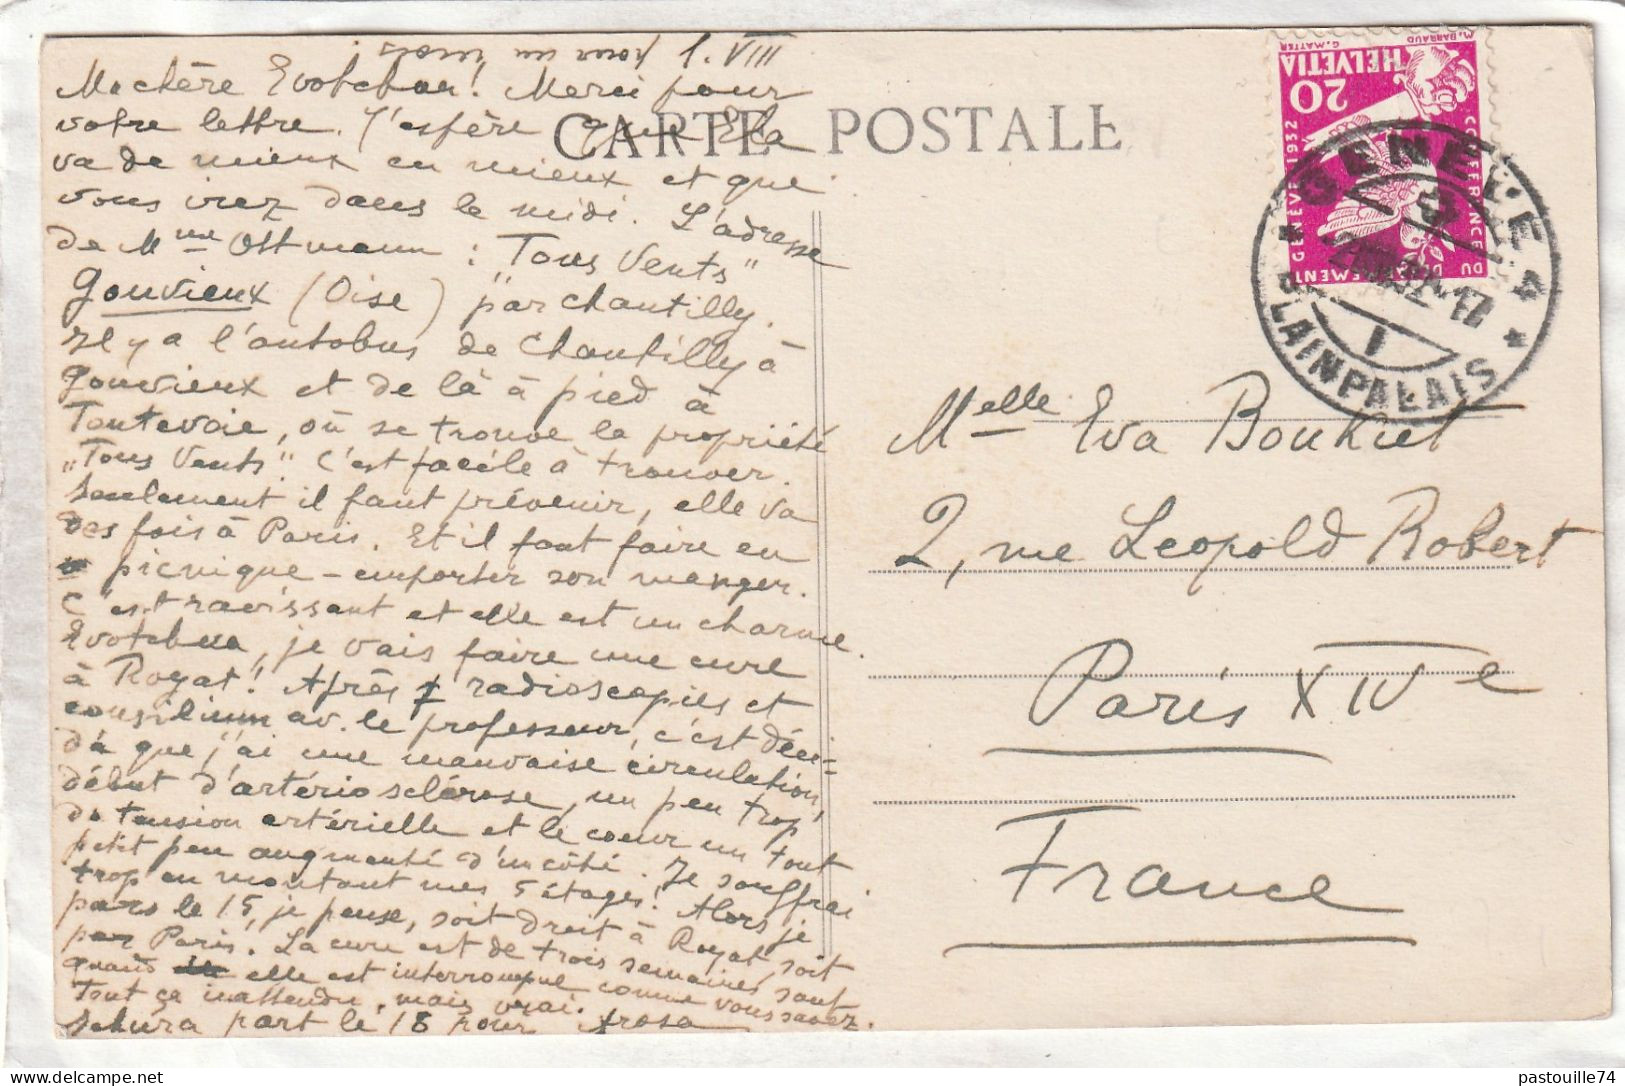 1. VIII
pour un mois!
CARTE POSTALE
Ma chère Evotchka! Merci pour
votre lettre. J'espère que Ella
va de mieux en mieux et que
vous irez dans le midi. L'adresse
de Mme Ottmann : "Tous Vents"
Gouvieux (Oise) par Chantilly.
Il y a l'autobus de Chantilly à
Gouvieux et de là à pied à
Toutevoie, où se trouve la propriété
"Tous Vents." C'est facile à trouver.
Seulement il faut prévenir, elle va
des fois à Paris. Et il faut faire en
picnique – emporter son manger.
C'est ravissant et elle est un charme.
Evotchka, je vais faire une cure
à Royat! Après radioscopies et
consilium av. le professeur, c'est déci-
dé que j'ai une mauvaise circulation,
début d'artériosclérose, un peu trop
de tension artérielle et le coeur un tout
petit peu augmenté d'un côté. Je souffrai
trop en montant mes 5 étages! Alors je
pars le 15, je pense, soit droit à Royat, soit
par Paris. La cure est de trois semaines, sauf
quand elle est interrompue comme vous savez.
Tout ça inattendu, mais vrai.
Sehura part le 18 pour Arosa
HELVETIA
20
G. MATTER
M. BARRAUD
GENÈVE 1932
CONFÉRENCE
DU DÉSARMEMENT
GENÈVE 4
PLAINPALAIS
Melle Eva Boukiet
2, rue Leopold Robert
Paris XIVe
France
pastouille74